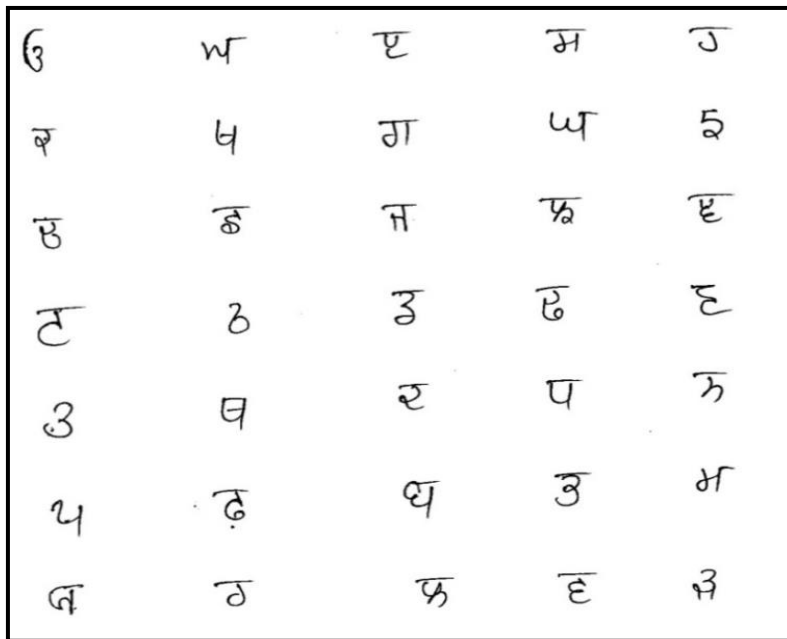 ੳ ਅ ੲ ਸ ਹ
ਕ ਖ ਗ ਘ ਙ
ਚ ਛ ਜ ਝ ਞ
ਟ ਠ ਡ ਢ ਣ
ਤ ਥ ਦ ਧ ਨ
ਪ ਫ਼ ਬ ਭ ਮ
ਯ ਰ ਲ ਵ ੜ